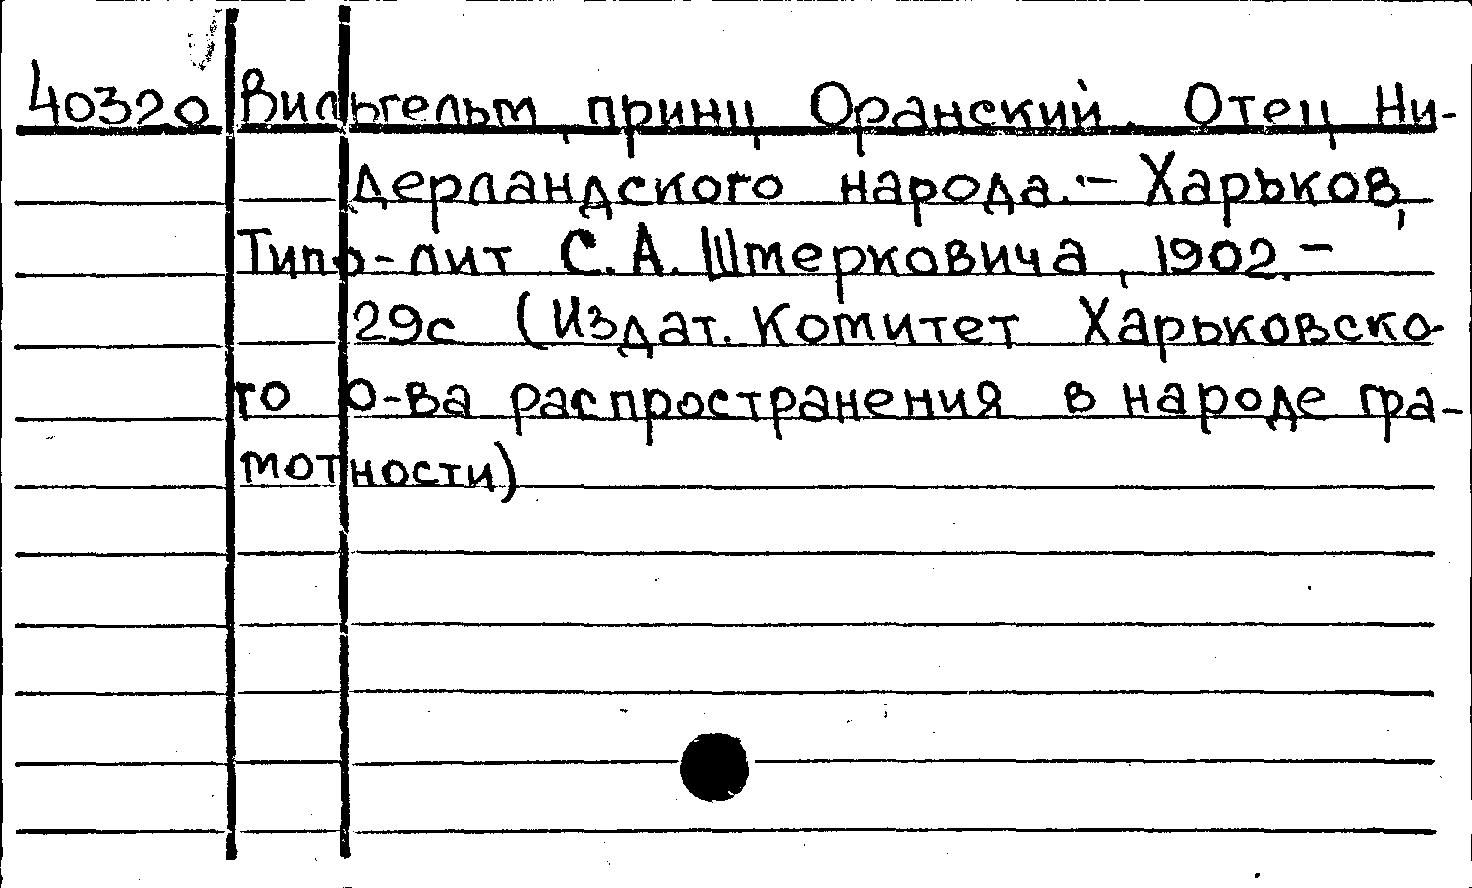 40320 Вильгельм, принц Оранский. Отец Ни-
дерландского народа.- Харьков,
Типо-лит С. А. Штерковича, 1902.-
29с (Издат. Комитет Харьковско-
го О-ва распространения в народе гра-
мотности)